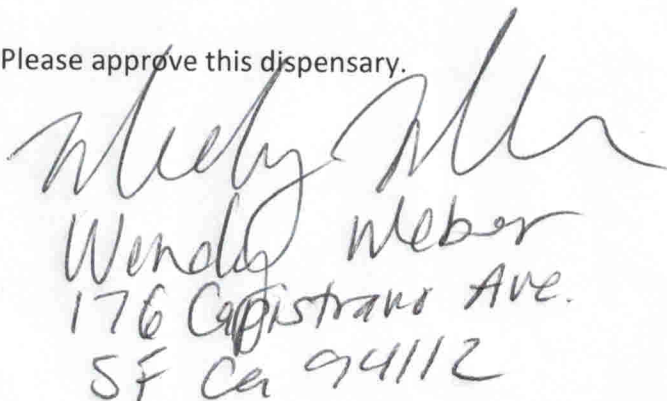 Please approve this dispensary.
Wendy Weber
176 Capistrano Ave.
SF Ca 94112